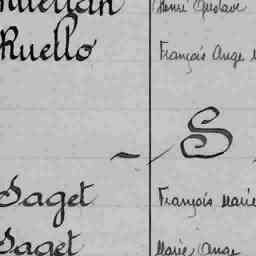 Henri Gustave
Ruello François Ange
S
Saget François Marie
Saget Marie Ange